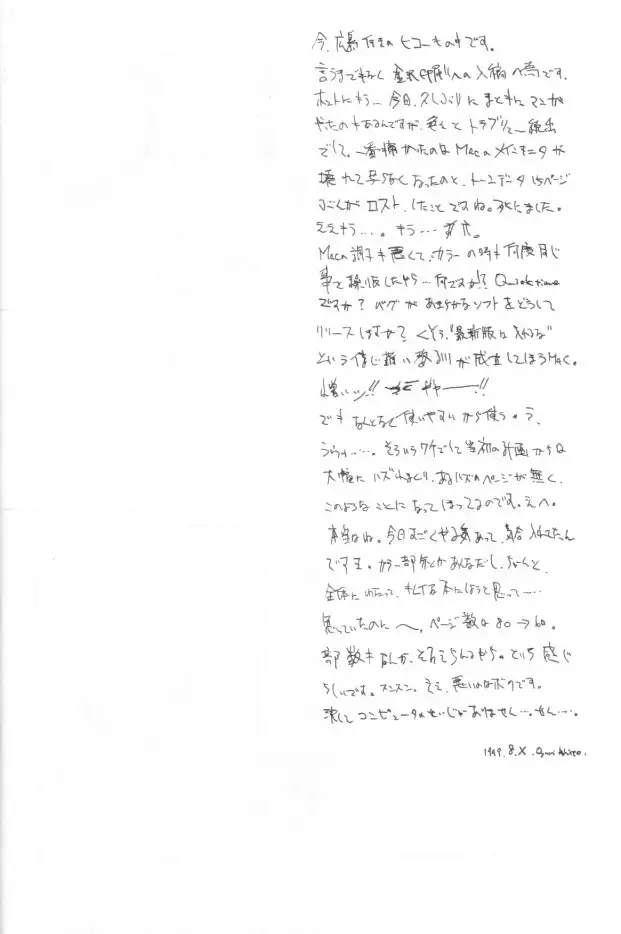 今、広島行きのヒコーキの中です。
言うまでもなく 金沢印刷への入稿の為です。
ホントにもう… 今日、久しぶりにまともにマンガ
やったのもあるんですが、色々とトラブル 続出
でして。一番痛かったのは Mecaメインモニタが
壊れて 見えなくなったのと、トーンデータ 15ページ
ロスト、したことですね。死にました。
ええもう…。もう…
Meca調子も悪くて、カラーの時も何度同じ
事を したやら…何ですか!? Quicktime
ですか? バグがあきらかなソフトをどうして
リリースしますか? くそう、"最新版は 入れるな"
という 信じ難い 到川が成立してしまうMac。
憎いッ!! ギャー――!!
でも なんとなく使いやすいから使う。う、
ううぅ……。そういうワケでして当初の計画からは
大幅にハズれまくり、あるハズのページが無く、
このようなことになってしまってるのです。えへ。
本当はね。今日すごくやる気あって、気合入れてたん
ですよ。カラー部分とかあんなだし、ちゃーんと、
全体にわたって、 本にしようと思って…
思っていたのに へ。ページ数は 80→60。
部数もなんか、そろえらんないやら。という感じ
らしいです。スンスン。ええ、悪いのはボクです。
決してコンピュータのせいじゃありません…。せん…。
1999. 8. X.